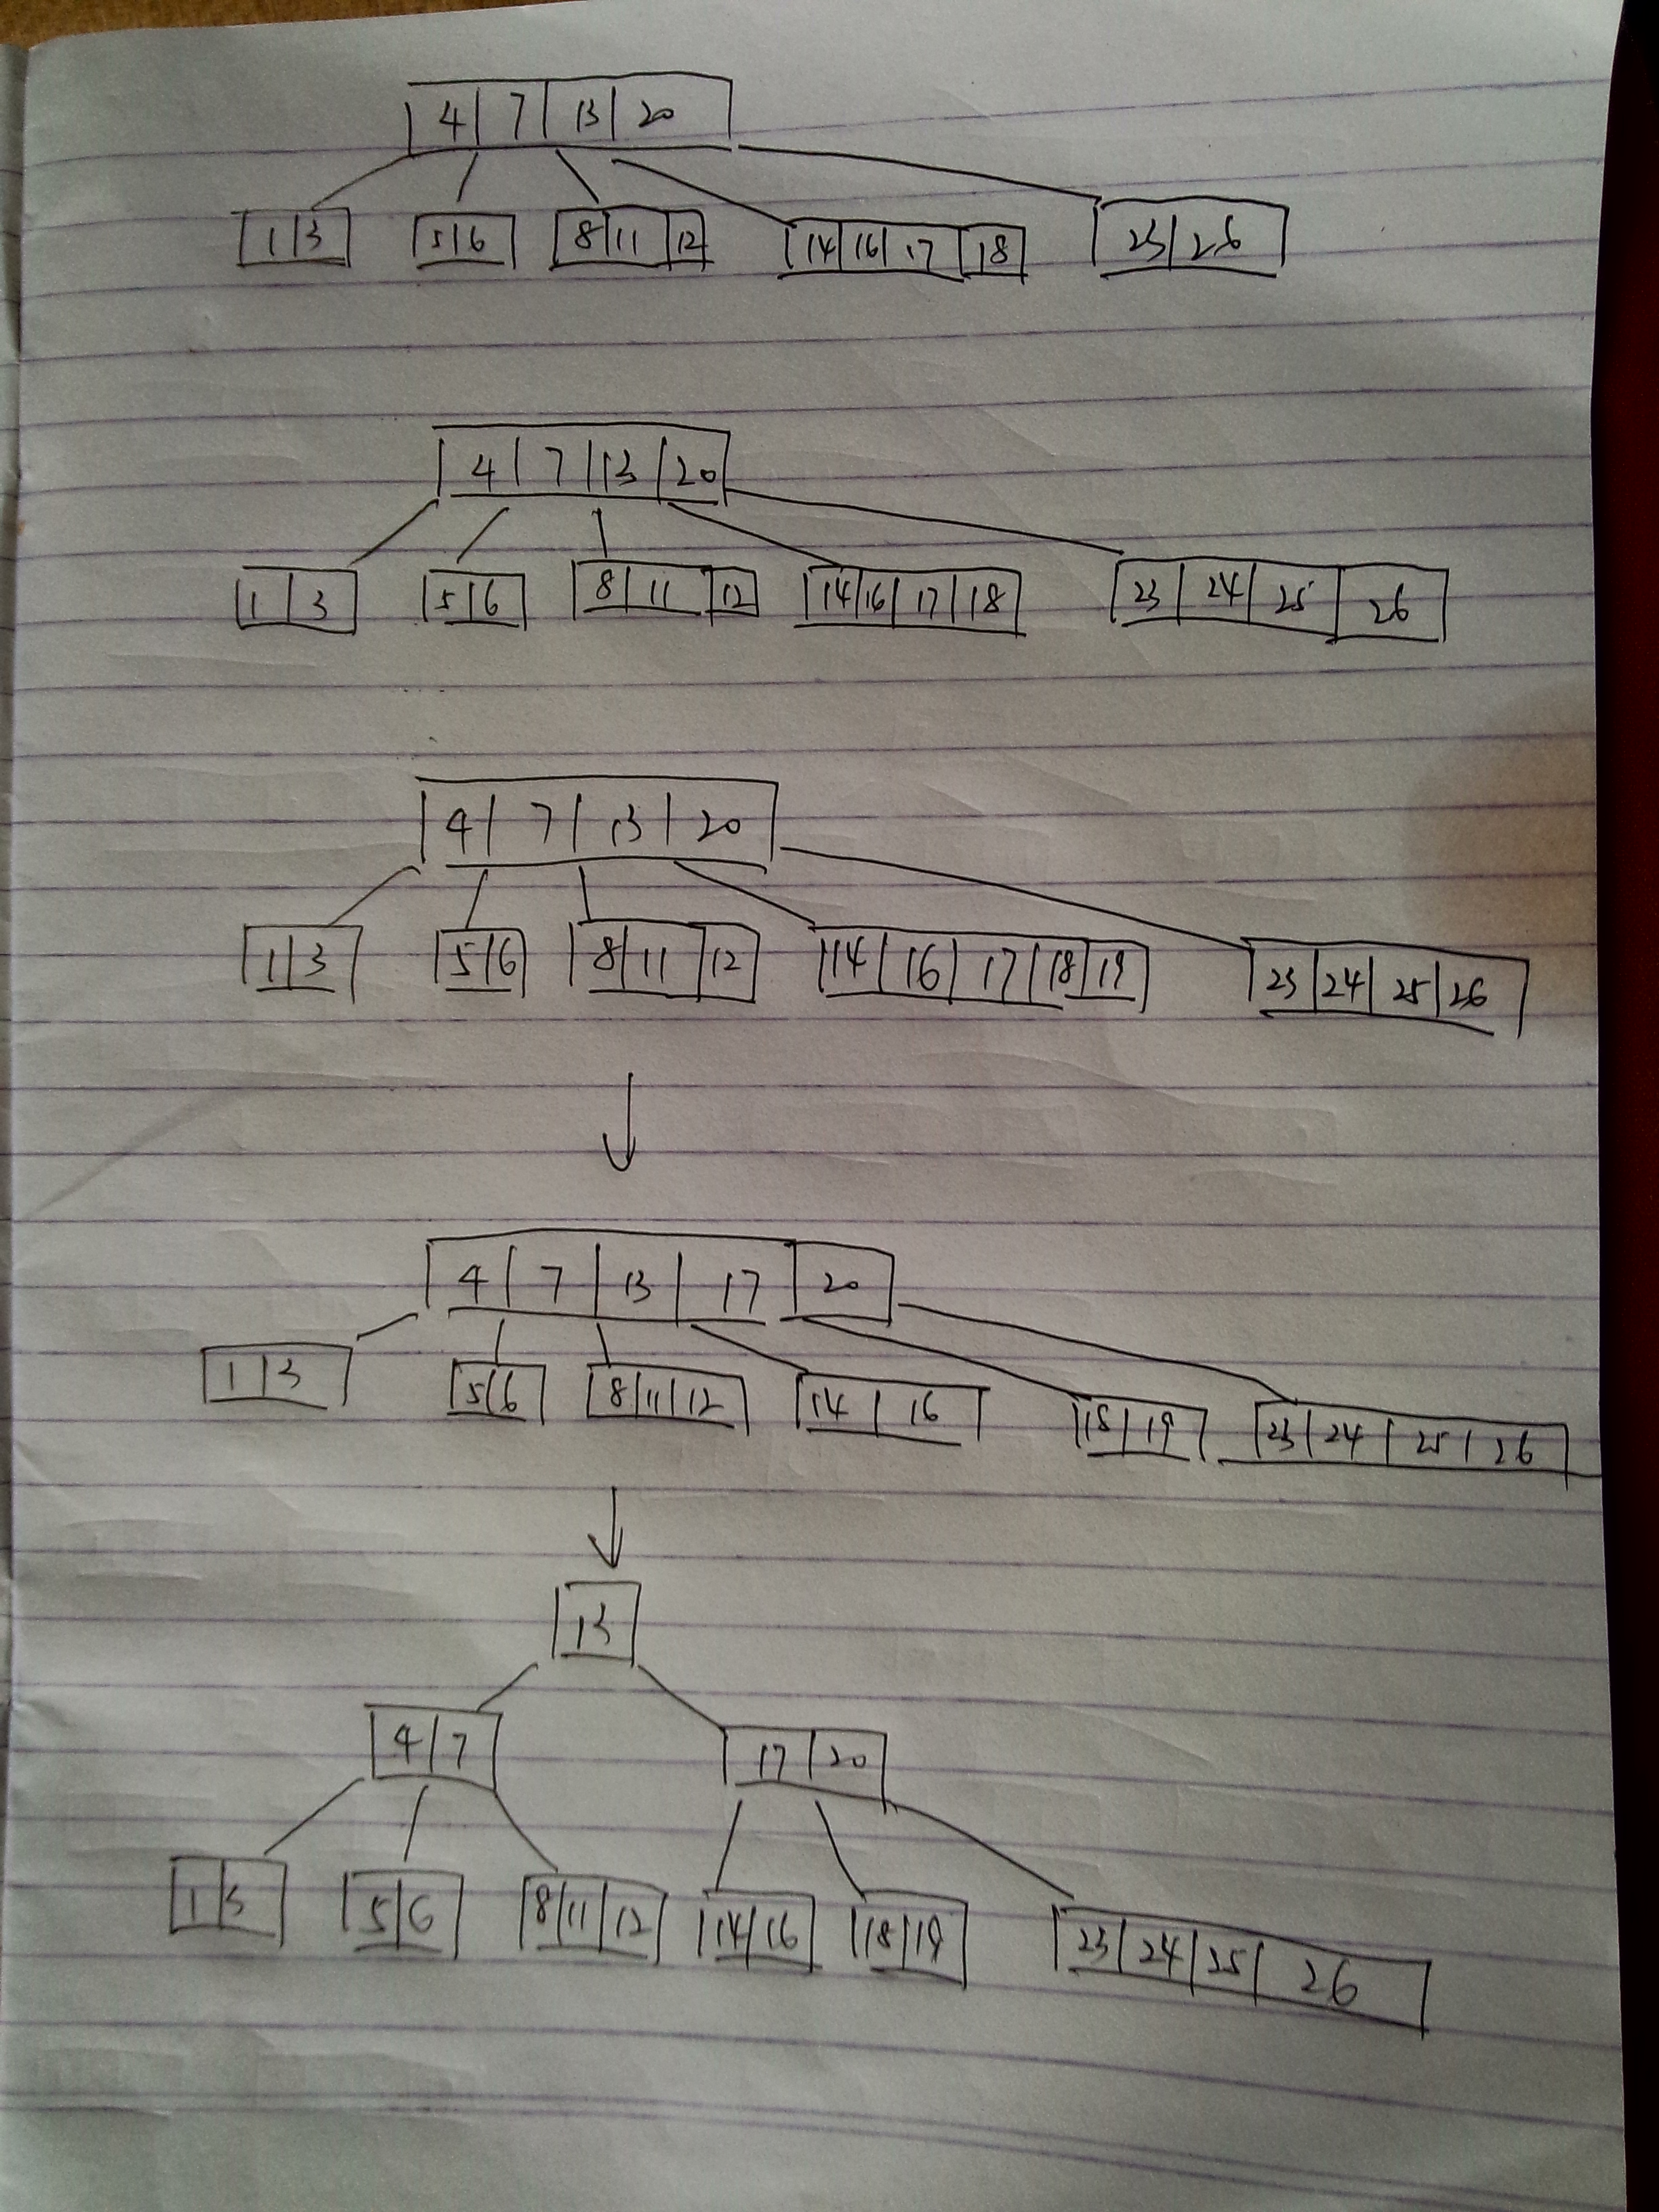 4 7 13 20
1 3 5 6 8 11 12 14 16 17 18 23 26
4 7 13 20
1 3 5 6 8 11 12 14 16 17 18 23 24 25 26
4 7 13 20
1 3 5 6 8 11 12 14 16 17 18 19 23 24 25 26
4 7 13 17 20
1 3 5 6 8 11 12 14 16 18 19 23 24 25 26
13
4 7 17 20
1 3 5 6 8 11 12 14 16 18 19 23 24 25 26